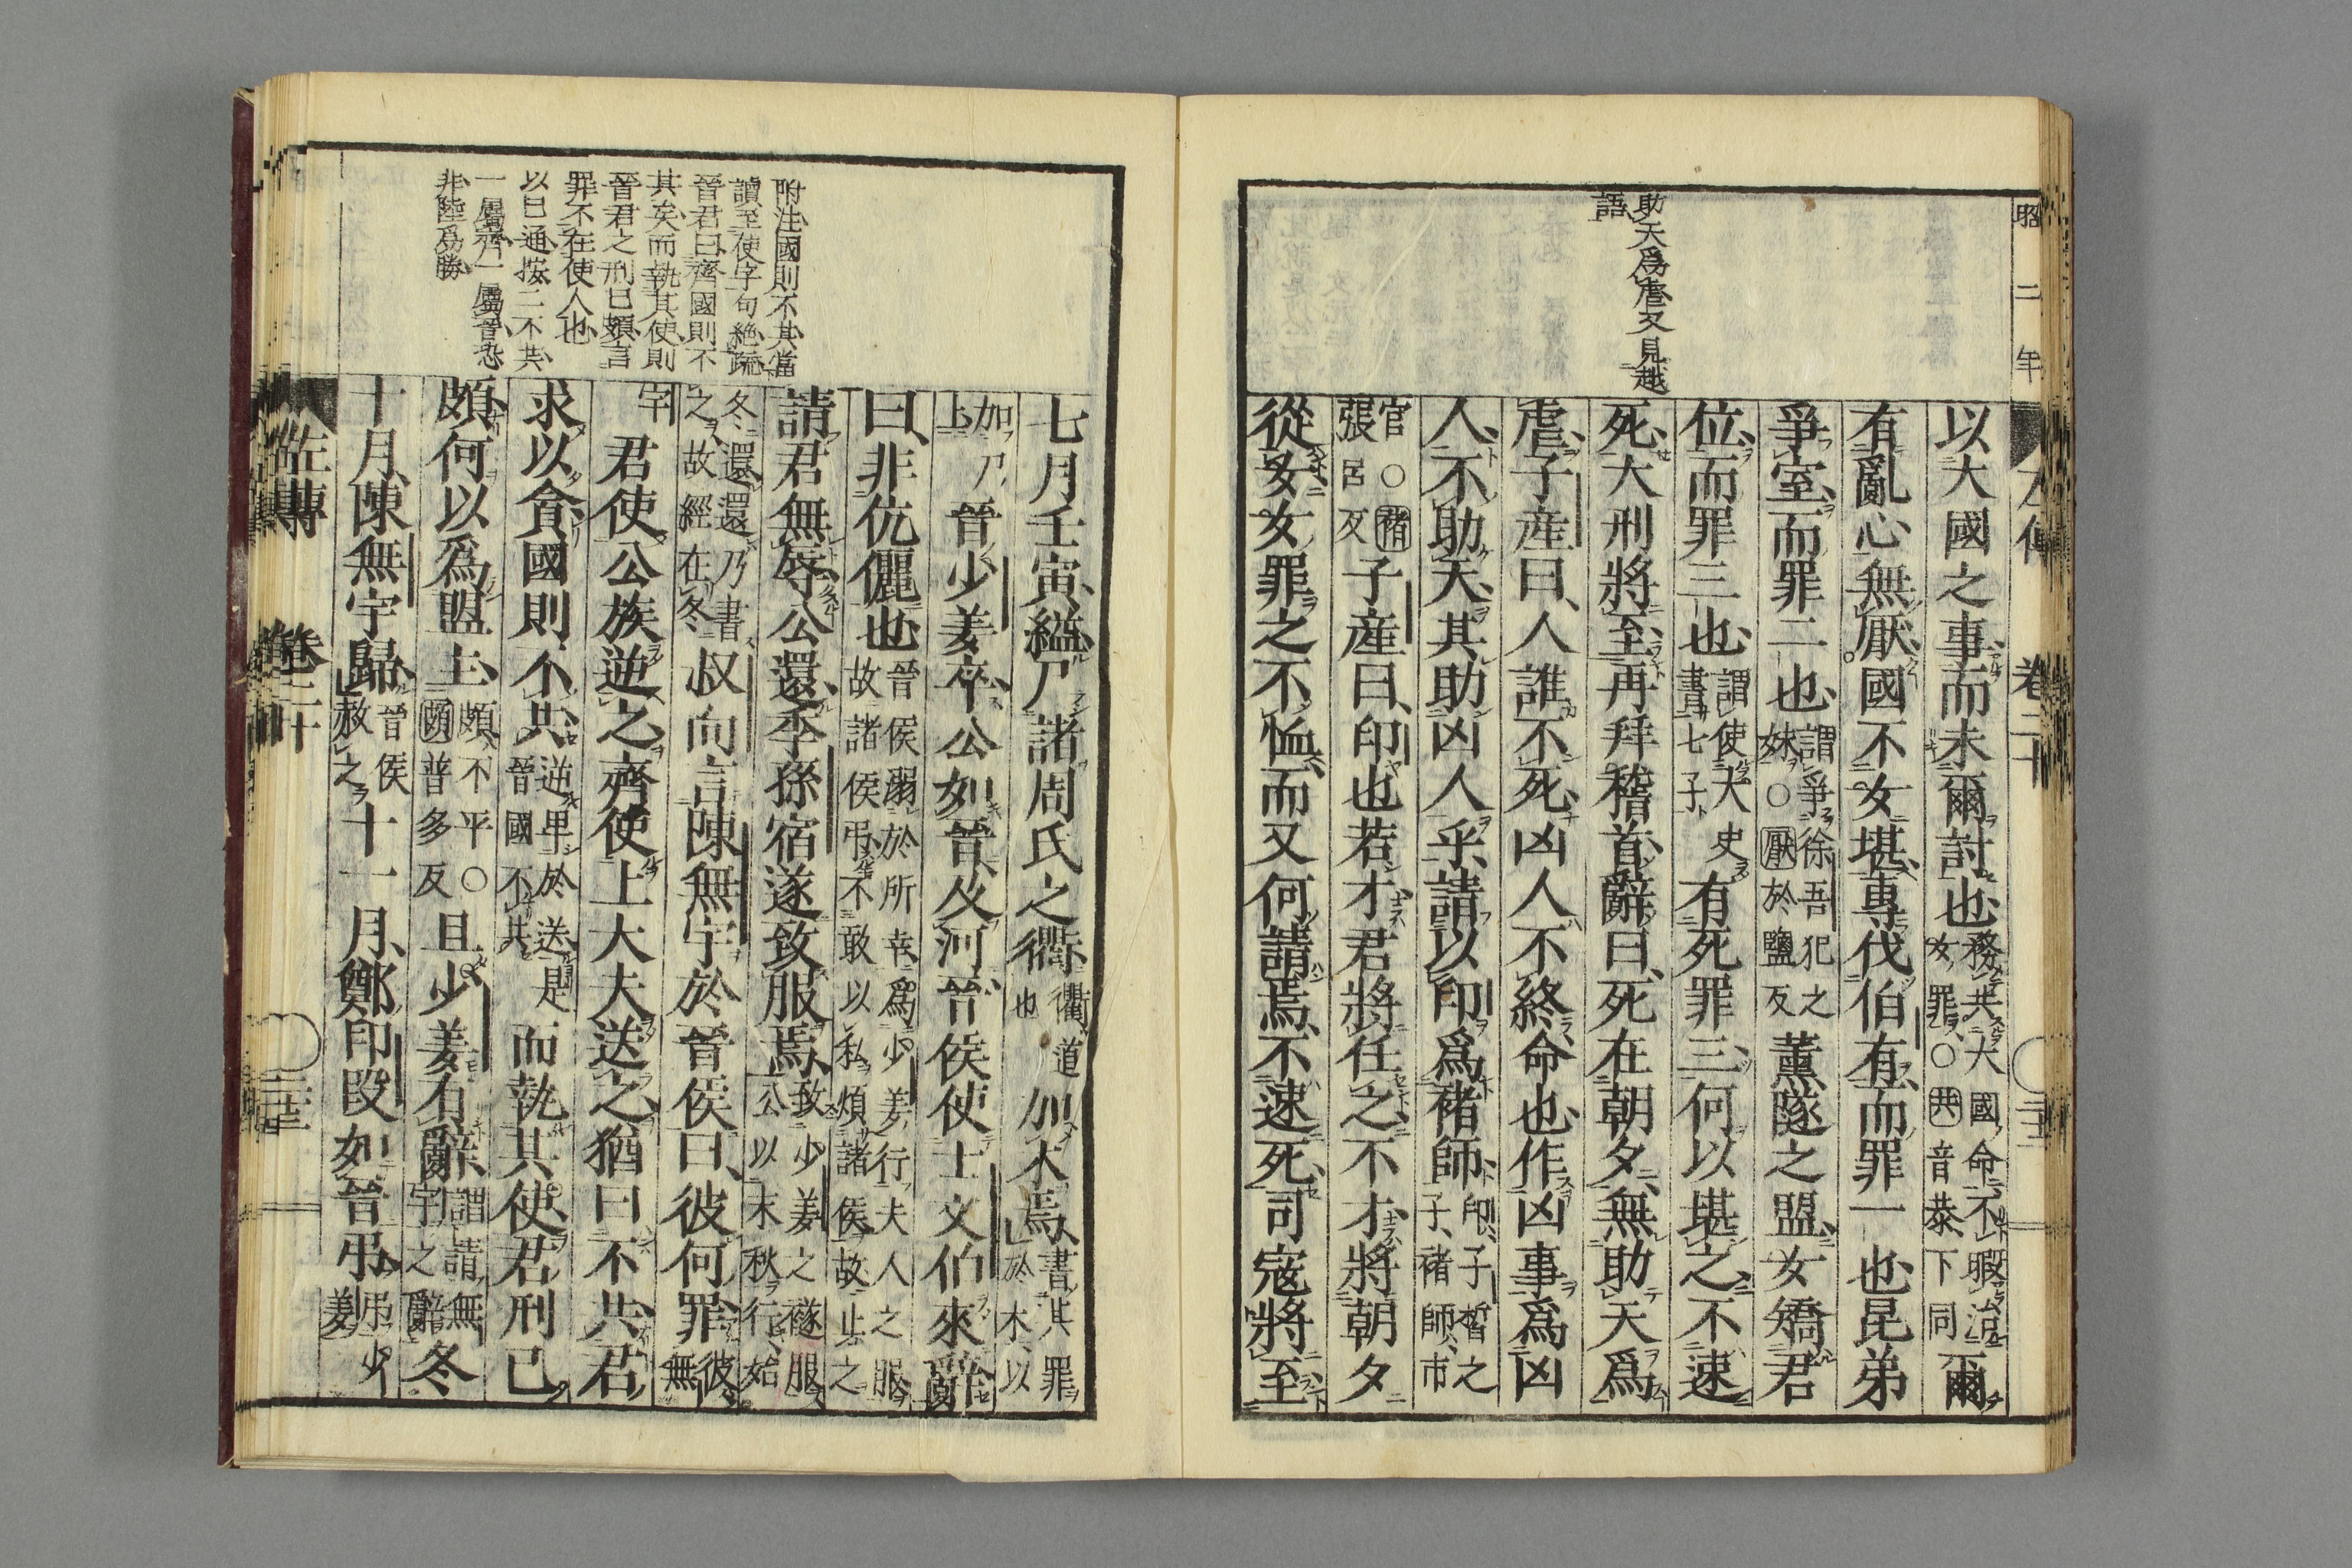 昭二年
左傳 卷二十
助天爲虐又見越
語
以大國之事而未爾討也務共大國命不暇治女罪○共音恭下同爾
有亂心無厭國不女堪專伐伯有而罪一也昆弟
爭室而罪二也謂爭徐吾犯之妹○厭於鹽反薰隧之盟女矯君
位而罪三也謂使大史書七子有死罪三何以堪之不速
死大刑將至再拜稽首辭曰死在朝夕無助天爲
虐子産曰人誰不死凶人不終命也作凶事爲凶
人不助天其助凶人乎請以印爲褚師印子晳之子褚師市
官○褚張呂反子産曰印也若才君將任之不才將朝夕
從女女罪之不恤而又何請焉不速死司寇將至
附注國則不共當
讀至使字句絶疏
晉君曰齊國則不
其矣而執其使則
晉君之刑已頗言
罪不在使人也
以巳通按二不共
一屬齊一屬晉恐
非陸爲勝
七月壬寅縊尸諸周氏之衢衢道也加木焉書其罪於木以
加尸上晉少姜卒公如晉及河晉侯使士文伯來辭
曰非伉儷也晉侯溺於所幸爲少姜行夫人之服故諸侯弔不敢以私煩諸侯故止之
請君無辱公還季孫宿遂致服焉致少姜之襚服公以末秋行始
冬還還乃書之故經在冬叔向言陳無宇於晉侯曰彼何罪彼無
宇君使公族逆之齊使上大夫送之猶曰不共君
求以貪國則不共逆卑於送是晉國不共而執其使君刑已
頗何以爲盟主頗不平○頗普多反且少姜有辭謂請無宇之辭冬
十月陳無宇歸晉侯赦之十一月鄭印段如晉弔弔少姜
左傳 卷二十